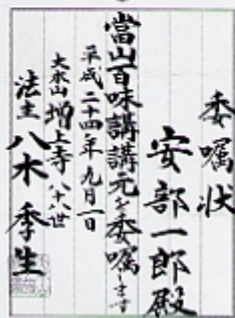 委嘱状
安部一郎殿
當山百味講講元を委嘱します
平成二十四年九月一日
大本山増上寺八十八世
法主八木季生